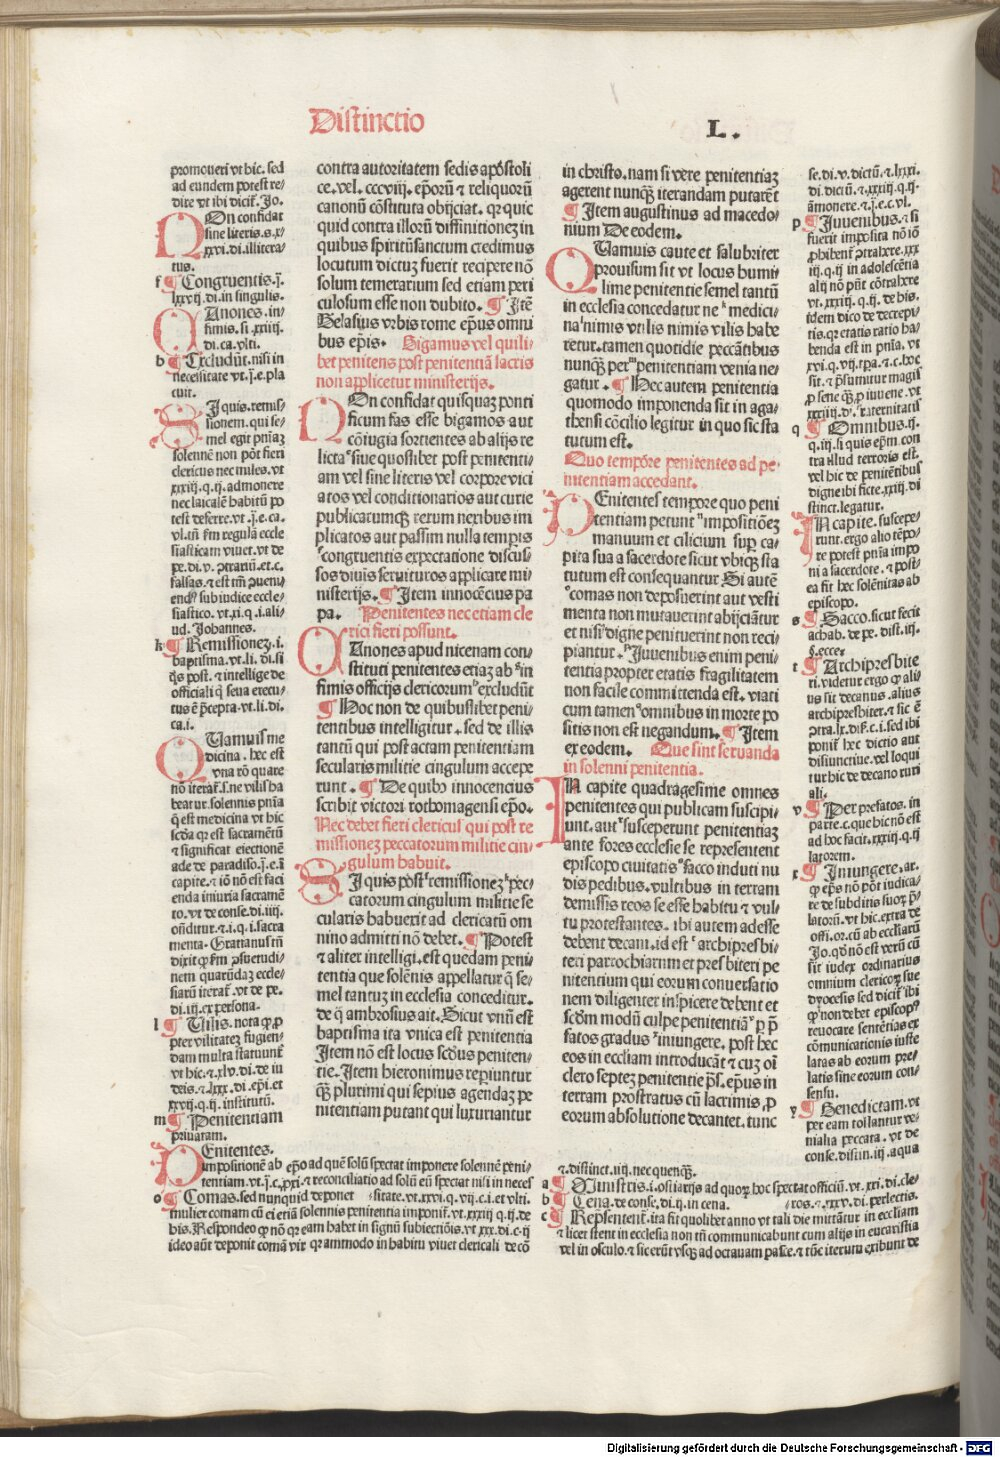 Distinctio
L.
promoueri vt hic. sed
ad eundem potest re/
dire vt ibi dicit᷑. Jo.
NOn confidat
sine literis. s. x/
xxvi. di. illitera/
tus.
f ¶ Congruentis. j̄.
lxxvij. di. in singulis.
CAnones. in/
fimis. si. xxiiij.
di. ca. vlti.
h ¶ Excludūt. nisi in
necessitate vt. j̄. e. pla
cuit.
SI quis. remis/
sionem. qui se/
mel egit pn̄iaȝ
solennē non pōt fieri
clericus nec miles. vt
xxxiij. q. ij. admonere
nec laicalē habitū po
test deferre. vt. j̄. e. ca.
vl. tn̄ ẜm regulā eccle
siasticam viuet. vt de
pe. di. v. ꝯtrariū. et. c.
falsas. ⁊ est tm̄ ꝯueni/
endꝰ sub iudice eccle/
siastico. vt. xi. q. i. ali/
ud. Johannes.
k ¶ Remissioneȝ. i.
baptisma. vt. li. di. si
q̄s post. ⁊ intellige de
officiali q̄ seua execu/
tus ē p̄cepta. vt. li. di.
ca. i.
QUamuis me
dicina. hec est
vna rō quare
nō iterat᷑. s. ne vilis ha
beatur. solennis pn̄ia
q̄ est medicina vt hic
scd̄a qꝛ est sacramētū
⁊ significat eiectionē
ade de paradiso. j̄. e. ī
capite. ⁊ iō nō est faci
enda iniuria sacramē
to. vt de conse. di. iiij.
on̄ditur. ⁊. i. q. i. sacra
menta. Gratianus tn̄
dixit ꝙ ẜm ꝯsuetudi/
nem quarūdaȝ eccle/
siarū iterat᷑. vt de pe.
di. iij. ex persona.
l ¶ Vilis. nota ꝙ ꝓ
pter vilitateȝ fugien/
dam multa statuunt᷑
vt hic. ⁊. xlv. di. de iu
deis. ⁊. lxxx. di. ep̄i. et
xxvij. q. ij. institutū.
m ¶ Penitentiam
priuatam.
PEnitentes.
impositionē ab ep̄o ad quē solū spectat imponere solennē peni/
tentiam. vt. j̄. c. ꝓxi. ⁊ reconciliatio ad solū eū spectat nisi in neces
o ¶ Comas. sed nunquid deponet /sitate. vt. xxvi. q. vij. c. i. et vlti.
mulier comam cū ei etiā solennis penitentia imponit᷑. vt. xxxiij q. ij. de
bis. Respondeo ꝙ nō qꝛ eam habet in signū subiectiōis. vt. xxx. di. c. ij
ideo aūt deponit comā vir qꝛ ammodo in habitu viuet clericali de cō
contra autoritatem sedis apōstoli
ce. vel. cccviij. ep̄orū ⁊ reliquorū
canonū cōstituta obijciat. qꝛ quic
quid contra illorū diffinitionez in
quibus spiritūsanctum credimus
locutum dictuȝ fuerit recipere nō
solum temerarium sed etiam peri
culosum esse non dubito. ¶ Itē
Gelasius vrbis rome ep̄us omni
bus ep̄is. Bigamus vel quili/
bet penitens post penitentiā lacris
non applicetur ministerijs.
NOn confidat quisquaȝ ponti
ficum fas esse bigamos aut
cōiugia sortientes ab alijs re
licta siue quoslibet post penitenti/
am vel sine literis vel corpore vici
atos vel conditionarios aut curie
publicarumqȝ rerum nexibus im
plicatos aut passim nulla temp̄is
congruentis expectatione discus/
sos diuis seruituros applicare mi/
nisterijs. ¶ Item innocēcius pa
pa. Penitentes nec etiam cle
rici fieri possunt.
CAnones apud nicenam con/
stituti penitentes etiaȝ ab in
fimis officijs clericorum excludūt
¶ Hoc non de quibuslibet peni/
tentibus intelligitur. sed de illis
tantū qui post actam penitentiam
secularis militie cingulum accepe
runt. ¶ De quibꝰ innocencius
scribit victori rothomagensi ep̄o.
Nec debet fieri clericus qui post re
missioneȝ peccatorum militie cin/
gulum habuit.
SI quis post remissionez pec/
catorum cingulum militie se
cularis habuerit ad clericatū om
nino admitti nō debet. ¶ Potest
⁊ aliter intelligi. est quedam peni/
tentia que solēnis appellatur q̄ se/
mel tantuȝ in ecclesia conceditur.
de q̄ ambrosius ait. Sicut vnū est
baptisma ita vnica est penitentia
Item nō est locus scd̄us peniten/
tie. Item hieronimus reperiuntur
qȝ plurimi qui sepius agendaȝ pe
nitentiam putant qui luxuriantur
in christo. nam si vere penitentiaȝ
agerent nunqȝ iterandam putarēt
¶ Item augustinus ad macedo/
nium De eodem.
QUamuis caute et salubriter
prouisum sit vt locus humi/
lime penitentie semel tantū
in ecclesia concedatur ne medici/
na nimis vtilis nimis vilis habe
retur. tamen quotidie peccātibus
nunqȝ per penitentiam venia ne/
gatur. ¶ Hec autem penitentia
quomodo imponenda sit in aga/
thensi cōcilio legitur in quo sic sta
tutum est.
Quo tempōre penitentes ad pe/
nitentiam accedant.
PEnitentes tempore quo peni
tentiam petunt impositiōeȝ
manuum et cilicium sup̄ ca/
pita sua a sacerdote sicut vbiqȝ sta
tutum est consequantur Si autē
comas non deposuerint aut vesti
menta non mutauerint abijciātur
et nisi digne penituerint non reci/
piantur. Juuenibus enim peni/
tentia propter etatis fragilitatem
non facile committenda est. viati
cum tamen omnibus in morte po
sitis non est negandum. ¶ Item
ex eodem. Que sint seruanda
in solenni penitentia.
IN capite quadragesime omnes
penitentes qui publicam suscipi/
unt. aut susceperunt penitentiaȝ
ante fores ecclesie se representent
episcopo ciuitatis sacco induti nu
dis pedibus. vultibus in terram
demissis reos se esse habitu ⁊ vul/
tu protestantes. ibi autem adesse
debent decani. id est archipresbi/
teri parrochiarum et presbiteri pe
nitentium qui eorum conuersatio
nem diligenter inspicere debent et
scd̄m modū culpe penitentiā ꝑ p̄
fatos gradus iniungere. post hec
eos in eccl̄iam introducāt ⁊ cuȝ oī
clero septeȝ penitentie ps̄. ep̄us in
terram prostratus cū lacrimis. ꝓ
eorum absolutione decantet. tunc
se. di. v. dictū. ⁊. lxxxi.
di. dictū. ⁊. xxxiij. q. ij.
āmonere. ⁊. j̄. e. c. vl.
p ¶ Juuenibus. ⁊ si
fuerit imposita nō iō
ꝓhibent᷑ ꝯtrahere. xxx
iij. q. ij. in adolescētia
alij nō pn̄t cōtrahere
vt. xxxiij. q. ij. de his.
idem dico de decrepi/
tis. qꝛ etatis ratio ha/
benda est in pn̄ia. vt
xxvi. q. vij. tp̄a. ⁊. c. hoc
sit. ⁊ p̄sumitur magis
ꝓ sene qȝ ꝓ iuuene. vt
xxxiij. di. fraternitatis
q ¶ Omnibus. ij.
q. iij. si quis ep̄m. con
tra illud terroris est.
vel hic de penitētibus
digne ibi ficte. xxiij. di
stinct. legatur.
IN capite. suscepe/
runt. ergo alio tēpo/
re potest pn̄ia impo
ni a sacerdote. ⁊ post/
ea fit hec solēnitas ab
episcopo.
s ¶ Sacco. sicut fecit
achab. de pe. dist. iij.
§. ecce.
t ¶ Archipresbite
ri. videtur ergo ꝙ ali/
us sit decanus. alius
archipresbiter. ⁊ sic ē
ꝯtra. lx. dist. c. i. sed ibi
ponit᷑ hec dictio aut
disiunctiue. vel loqui
tur hic de decano ruri
ali.
v ¶ Per prefatos. in
parte. c. que hic nō est
ad hoc facit. xxxiij. q. ij
latorem.
x ¶ Iniungere. ar.
ꝙ ep̄s nō pōt iudica/
re de subditis suoꝝ p̄/
latorū. vt hic. extra de
offi. or. cū ab ecclīarū
Jo. qd̄ nō est verū cū
sit iudex ordinarius
omnium clericoꝝ sue
dyocesis sed dicit᷑ ibi
ꝙ non debet episcopꝰ
reuocare sentētias ex
cōmunicationis iuste
latas ab eorum pre/
latis sine eorum con/
sensu.
y ¶ Benedictam. vt
per eam tollantur ve/
nialia peccata. vt de
conse. distin. iij. aqua
⁊. distinct. iiij. nec quenqȝ.
a ¶ Ministris. i. ostiarijs ad quoꝝ hoc spectat officiū. vt. xxi. di. cle/
b ¶ Cena. de conse. di. ij. in cena. /ros. ⁊. xxv. di. perlectis.
c ¶ Rep̄sentent᷑. ita fit quolibet anno vt tali die mittātur in eccl̄iam
⁊ licet stent in ecclesia non tn̄ communicabunt cum alijs in eucaristia
vel in osculo. ⁊ sic erūt vsqȝ ad octauam pasce. ⁊ tūc iterum exibunt de
Digitalisierung gefördert durch die Deutsche Forschungsgemeinschaft - DFG